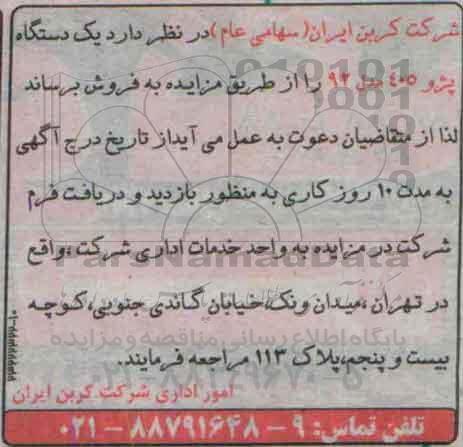 شرکت کربن ایران(سهامی عام)در نظر دارد یک دستگاه
پژو ۴۰۵ مدل ۹۲ را از طریق مزایده به فروش برساند
لذا از متقاضیان دعوت به عمل می آیداز تاریخ درج آگهی
به مدت ۱۰ روز کاری به منظور بازدید و دریافت فرم
شرکت در مزایده به واحد خدمات اداری شرکت ،واقع
در تهران ،میدان ونک،خیابان گاندی جنوبی،کوچه
بیست و پنجم،پلاک ۱۱۳ مراجعه فرمایند.
امور اداری شرکت کربن ایران
تلفن تماس: ۹ - ۸۸۷۹۱۶۴۸ - ۰۲۱
ParsNamadData
پایگاه اطلاع رسانی مناقصه و مزایده